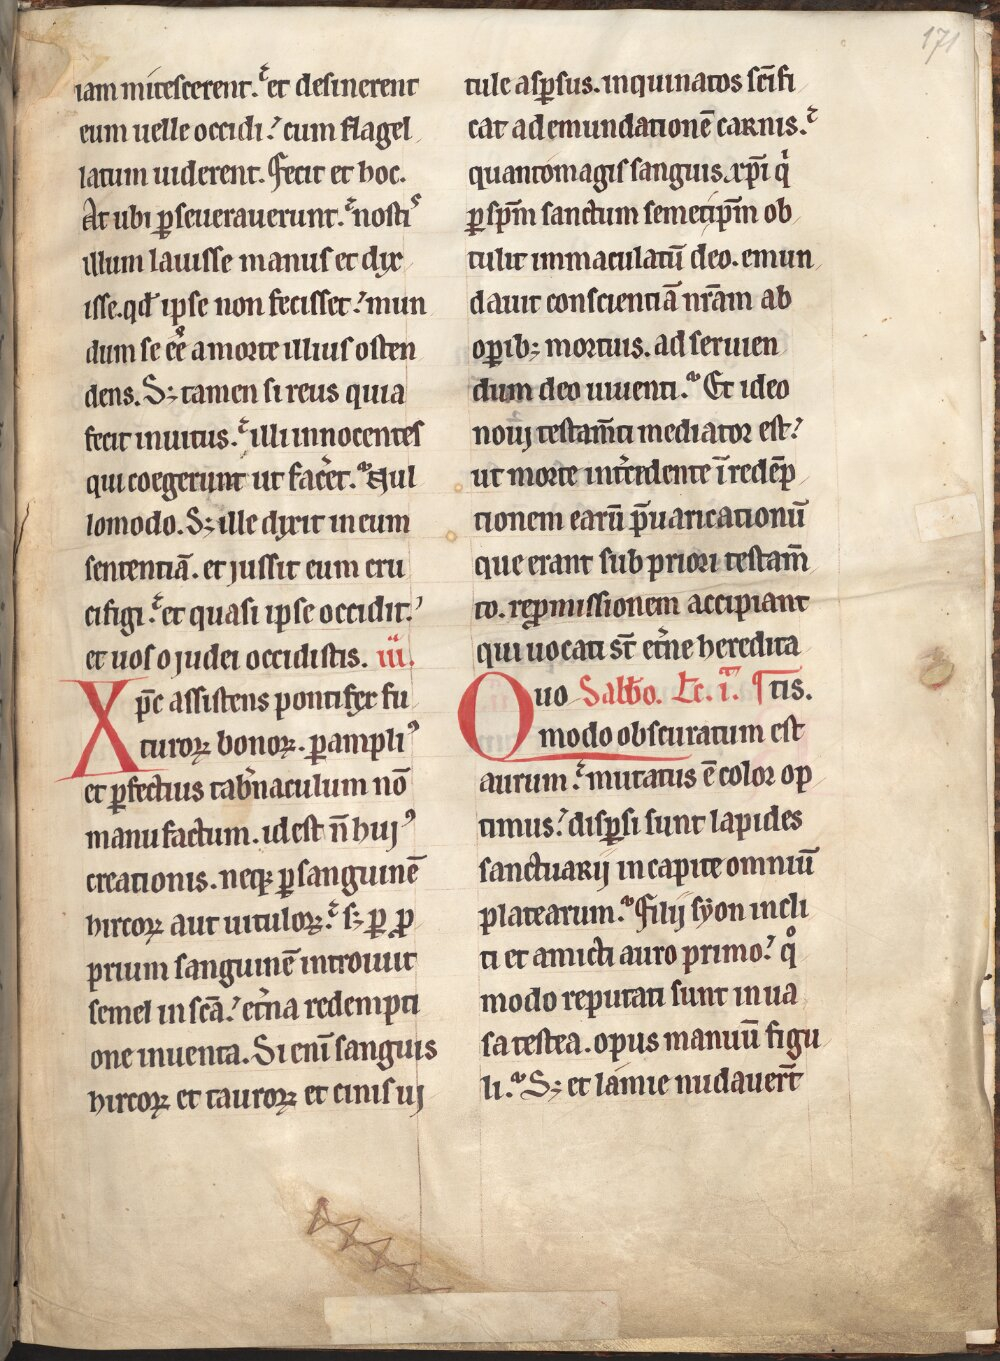 171
iam mitescerent. et desinerent
eum uelle occidi? cum flagel
latum uiderent. Fecit et hoc.
At ubi ꝑseuerauerunt. nosti
illum lauisse manus et dix
isse. qđ ipse non fecisset? mun
dum se eē a morte illius osten
dens. Sꝫ tamen si reus quia
fecit inuitus. illi innocentes
qui coegerunt ut facet. Nul
lomodo. Sꝫ ille dixit in eum
sententiā. et jussit eum cru
cifigi. et quasi ipse occidit?
et uos o judei occidistis. iii.
Xp̄c assistens pontifex fu
turoꝝ bonoꝝ. ꝑ ampliꝰ
et ꝑfectius tab̓naculum nō
manu factum. id est n̄ hujꝰ
creationis. neqꝫ ꝑ sanguinē
hircoꝝ aut uituloꝝ. sꝫ ꝑ ꝓ
prium sanguinē introiuit
semel in scā? et̓na redempti
one inuenta. Si enī sanguis
hircoꝝ et tauroꝝ et cinis uj
tule asꝑsus. inquinatos sc̄ifi
cat ad emundationē carnis.
quanto magis sanguis xp̄i q̓
ꝑ sp̄m sanctum semetip̄m ob
tulit immaculatū deo. emun
dauit conscientiā nr̄am ab
oꝑibꝫ mortuis. ad seruien
dum deo uiuenti. Et ideo
noui testam̄ti mediator est?
ut morte int̓cedente ī redēp
tionem earū p̄uaricationū
que erant sub priori testam̄
to. reꝓmissionem accipiant
qui uocati st̄ et̓ne heredita
Quo Sabb̄o. Lc̄. i. ¶ tis.
modo obscuratum est
aurum? mutatus ē color op
timus? disꝑsi sunt lapides
sanctuarij in capite omniū
platearum. Filij syon incli
ti et amicti auro primo? qͦ
modo reputati sunt in ua
sa testea. opus manuū figu
li. Sꝫ et lamie nudauer̄t